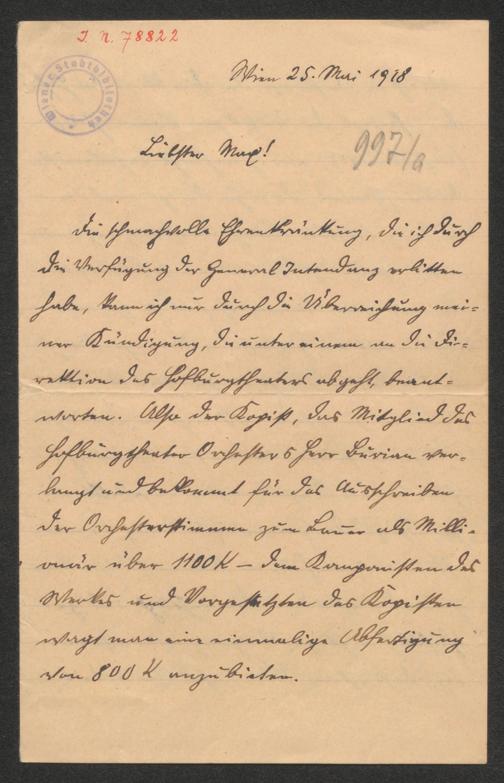 I. N. 78822
Wiener Stadtbibliothek
Wien 25. Mai 1918
Liebster Max!
997/a
Die schmachvolle Ehrenkränkung, die ich durch
die Verfügung der General Intendanz erlitten
habe, kann ich nur durch die Überreichung mei-
ner Kündigung, die unter einem an die Di-
rektion des Hofburgtheaters abgeht, beant-
worten. Also der Kopist, das Mitglied des
Hofburgtheater Orchesters Herr Burian ver-
langt und bekommt für das Ausschreiben
der Orchesterstimmen zum Bauer als Milli-
onär über 1100 K – dem Komponisten des
Werkes und Vorgesetzten des Kopisten
wagt man eine einmalige Abfertigung
von 800 K anzubieten.